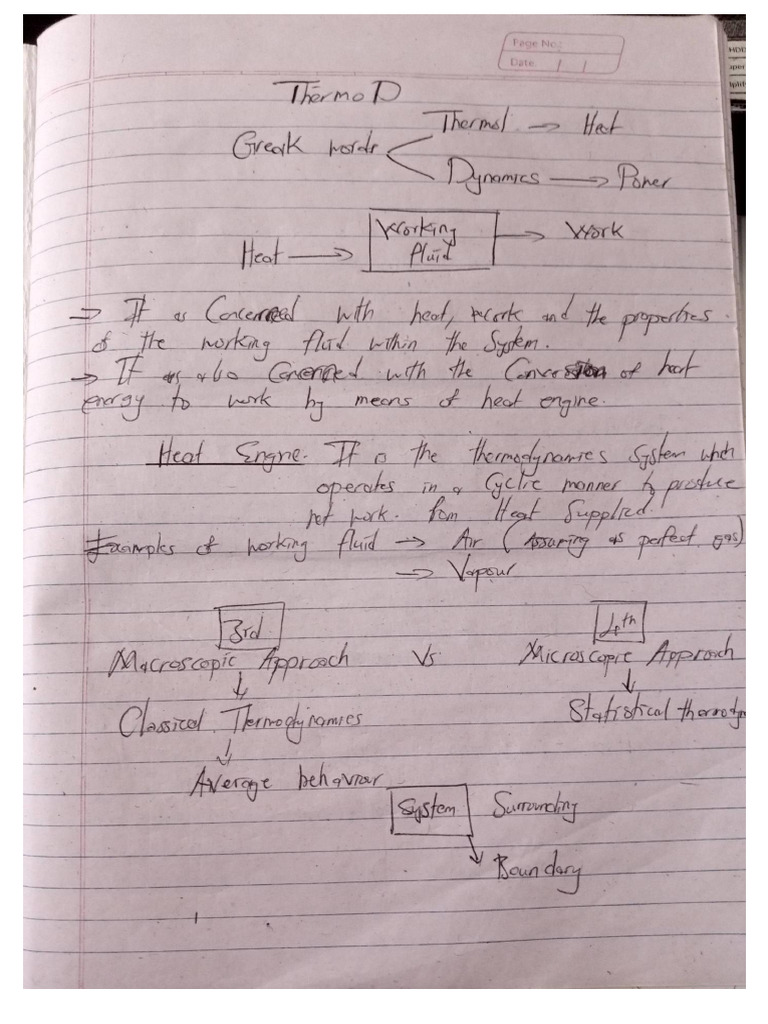 Page No.:
Date / /
HDD
ThermoD
Thermal → Heat
Greak words
Dynamics → Power
Heat → Working fluid → Work
⇒ It is Concerned with heat, work and the properties
of the working fluid within the System.
→ It is also Concerned with the Conversion of heat
energy to work by means of heat engine.
Heat Engine. It is the thermodynamics System which
operates in a Cyclic manner to produce
net work. from Heat Supplied.
Examples of working fluid → Air (Assuming as perfect gas)
→ Vapour
3rd 4th
Macroscopic Approach Vs Microscopic Approach
↓ ↓
Classical Thermodynamics Statistical thermody
↓
Average behaviour
System Surrounding
Boundary